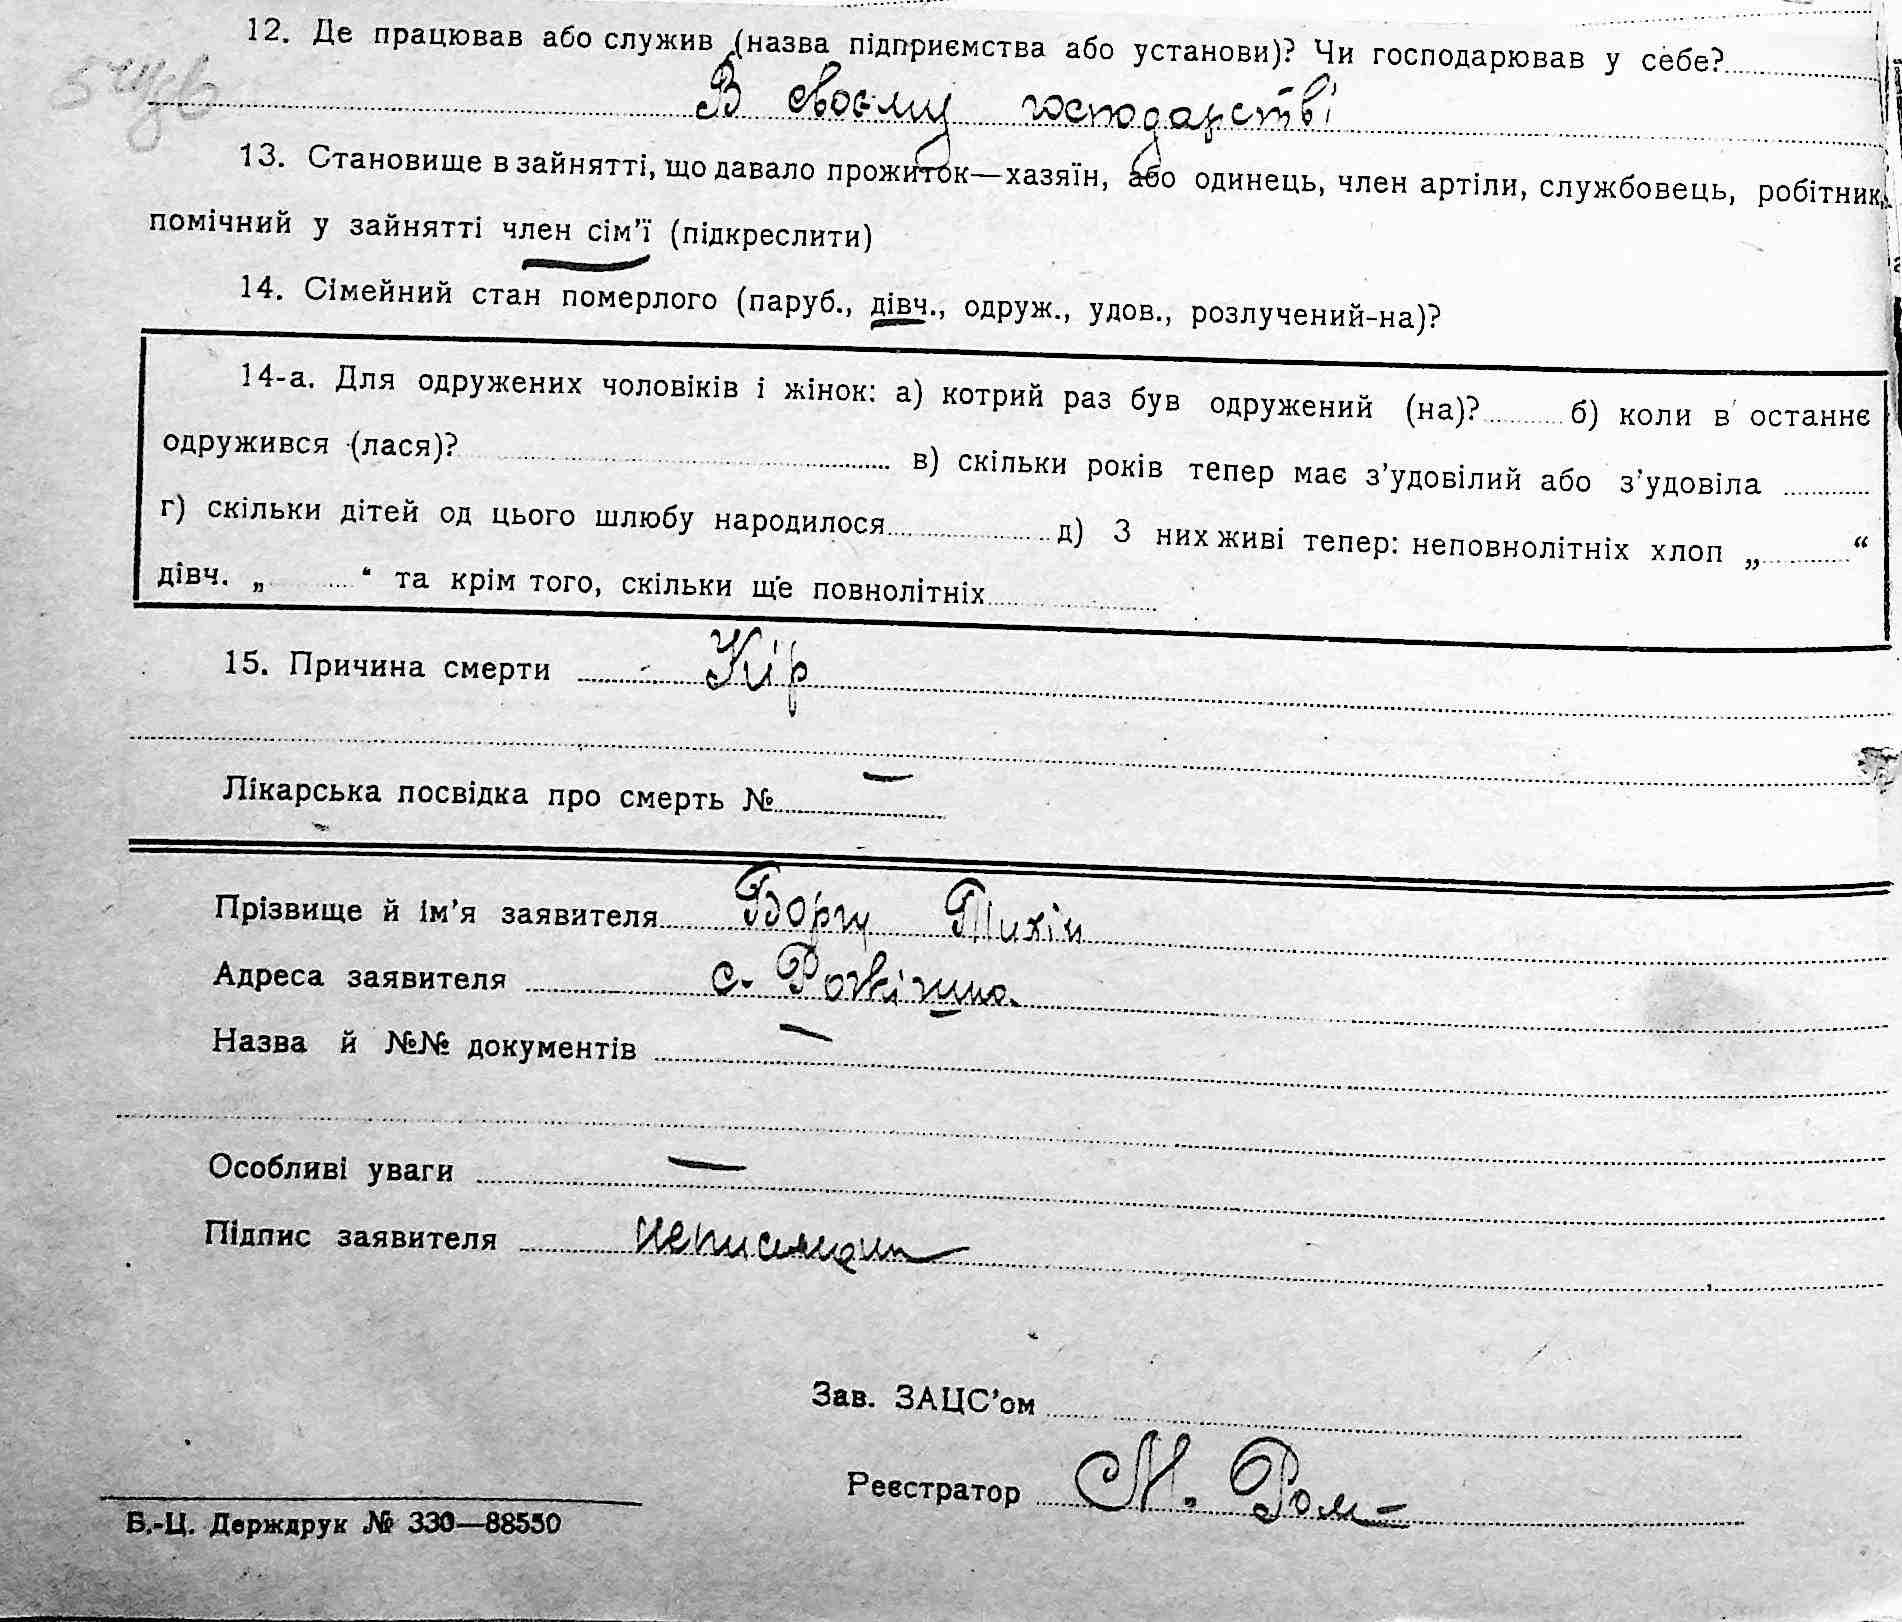 12. Де працював або служив (назва підприємства або установи)? Чи господарював у себе?
В своєму господарстві
13. Становище в зайнятті, що давало прожиток—хазяїн, або одинець, член артіли, службовець, робітник,
помічний у зайнятті член сім'ї (підкреслити)
14. Сімейний стан померлого (паруб., дівч., одруж., удов., розлучений-на)?
14-а. Для одружених чоловіків і жінок: а) котрий раз був одружений (на)? б) коли в останнє
одружився (лася)? в) скільки років тепер має з'удовілий або з'удовіла
г) скільки дітей од цього шлюбу народилося д) З них живі тепер: неповнолітніх хлоп „ “
дівч. „ “ та крім того, скільки ще повнолітніх
15. Причина смерти Кір
Лікарська посвідка про смерть № —
Прізвище й ім'я заявителя Борщ Тихін
Адреса заявителя с.
Назва й №№ документів —
Особливі уваги —
Підпис заявителя
Зав. ЗАЦС'ом
Реєстратор М. Ром
Б.-Ц. Держдрук № 330—88550